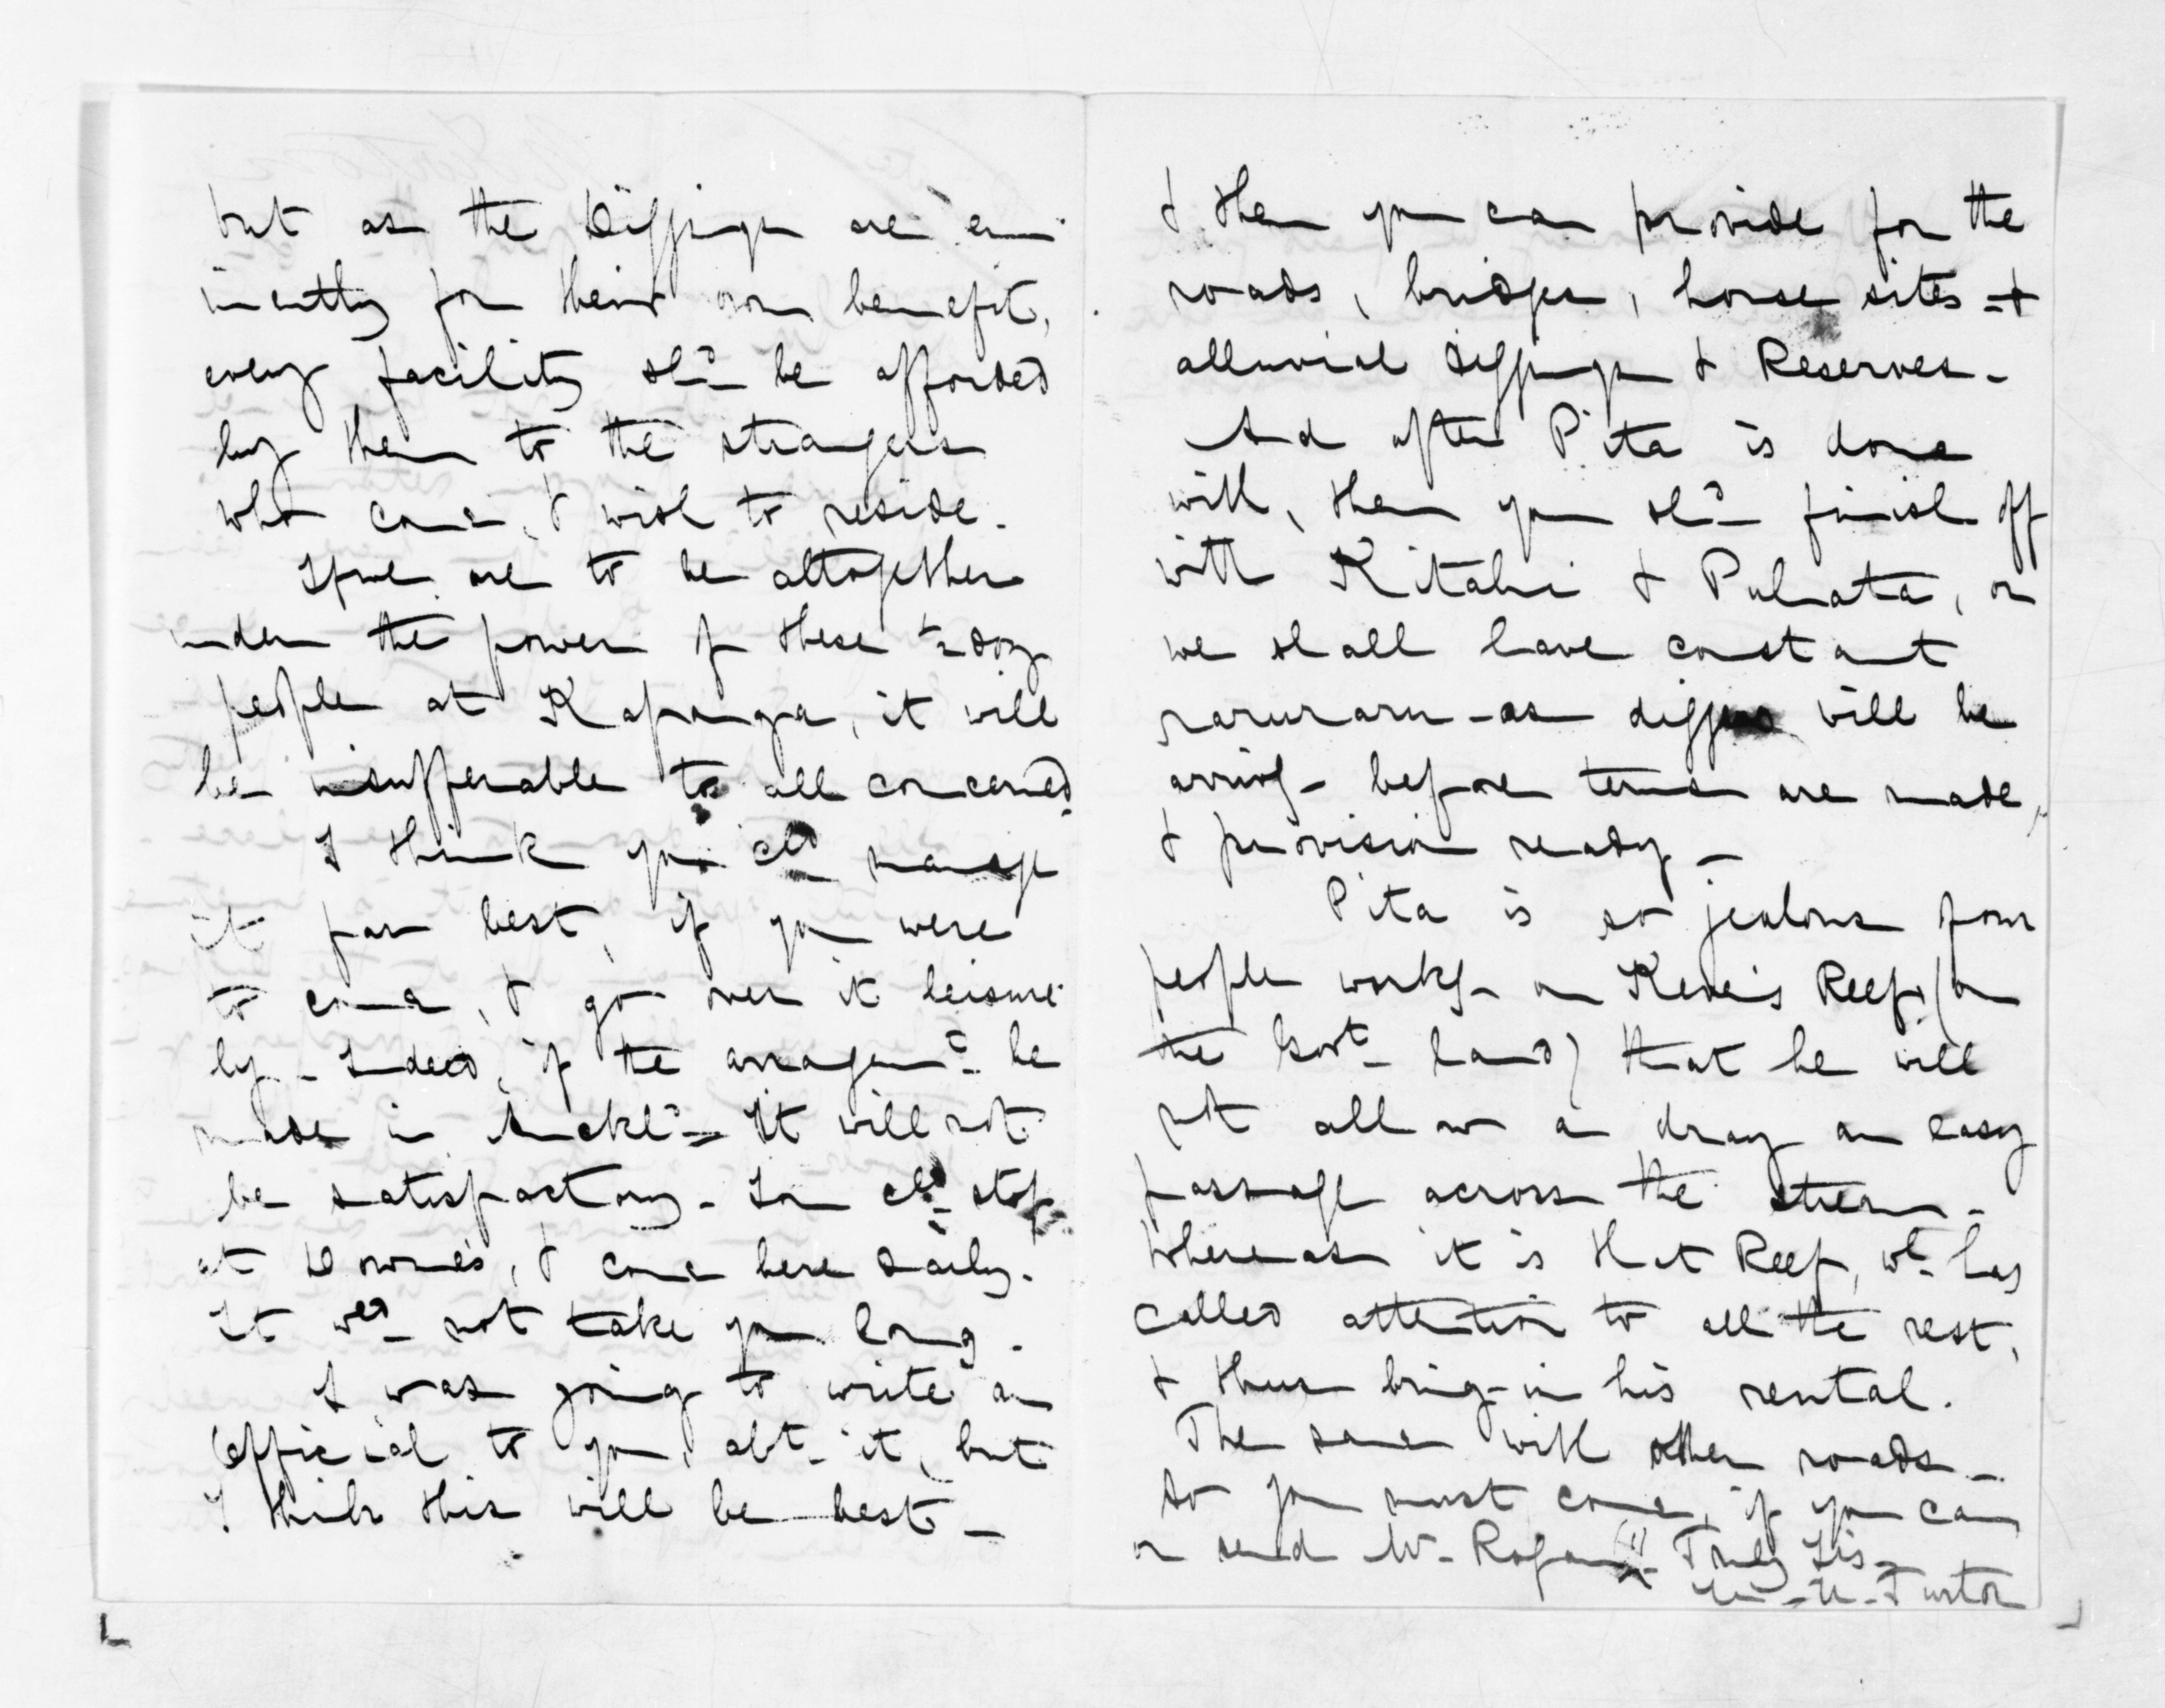 but as the Diggings are em-
inently for their own benefit,
every facility shd be afforded
by them to the strangers
who come, & wish to reside.
If we are to be altogether
under the power of these
people at Kapanga, it will
be insufferable to all concerned.
I think you cld manage
it far best, if you were
to come, & go over it leisure-
ly - Indeed, if the arrangemt be
made in Auckld - It will not
be satisfactory - You cld stop
at Downe's, & come here daily.
It wld not take you long -
I was going to write an
Official to you, abt it, but
I think this will be best -
& then you can provide for the
roads, bridges, house sites - &
alluvial diggings & Reserves -
And after Pita is done
with, then you shd finish off
with Kitahi & Puhata, or
we shall have constant
raruraru - as diggers will be
arrivg - before terms are made,
& provision ready -
Pita is so jealous of our
people workg - on Keven's Reef (on
the Govt land) that he will
not allow a dray an easy
passage across the stream -
Whereas it is that Reef, wh has
called attention to all the rest,
& thus bring - in his rental.
The same with other roads -
So you must come, if you can,
or send Mr - Rogan!! Truly Yrs -
H - Turton